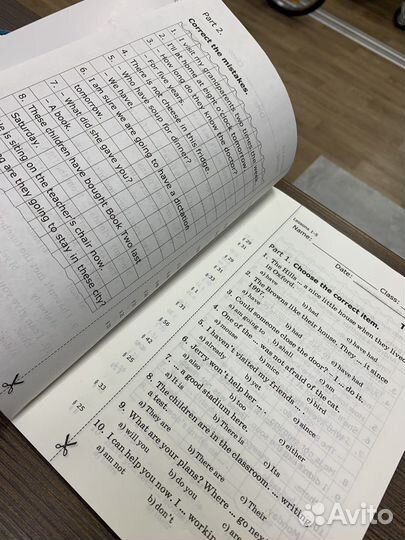 Part 2.
Correct the mistakes.
1. I visit my grandparents two times the week.
2. I'll at home at eight o'clock tomorrow.
3. – How long do they know the doctor?
– For five years.
4. There is not cheese in this fridge.
5. – Who have soup for dinner?
– We have.
6. I am sure we are going to have a dictation
tomorrow.
7. – What did she gave you?
– A book.
8. These chidren have bought Book Two last
Saturday.
is sitting on the teacher's chair now.
are they going to stay in these city?
§ 29
§ 31
§ 29
§ 31
§ 33
§ 1
§ 31
§ 55
§ 42
§ 25
§ 33
§ 25
Lessons 1-5
Name:
Date:
Class:
T
Part 1. Choose the correct item.
1. The Hills ... a nice little house when they lived
in Oxford.
a) have
b) had
c) have had
2. The Browns like their house. They ... it since
1997.
a) have
b) had
c) have had
3. Could someone close the door? - I ... do it.
a) am going to
b) shall
c) will
4. One of the ... was not afraid of the cat.
a) mouse
b) mice
c) bird
5. I haven't visited my friends ... .
a) already
b) yet
c) since
6. Jerry won't help her ... .
a) also
b) too
c) either
7. ... a good stadium here.
a) It is
b) There is
c) Its
8. The children are in the classroom. ... writing
a test.
a) They are
b) There are
c) Their
9. What are your plans? Where ... go next
a) will you
b) do you
c) are
10. I can help you now. I ... workin
a) am not
b) don't
Avito